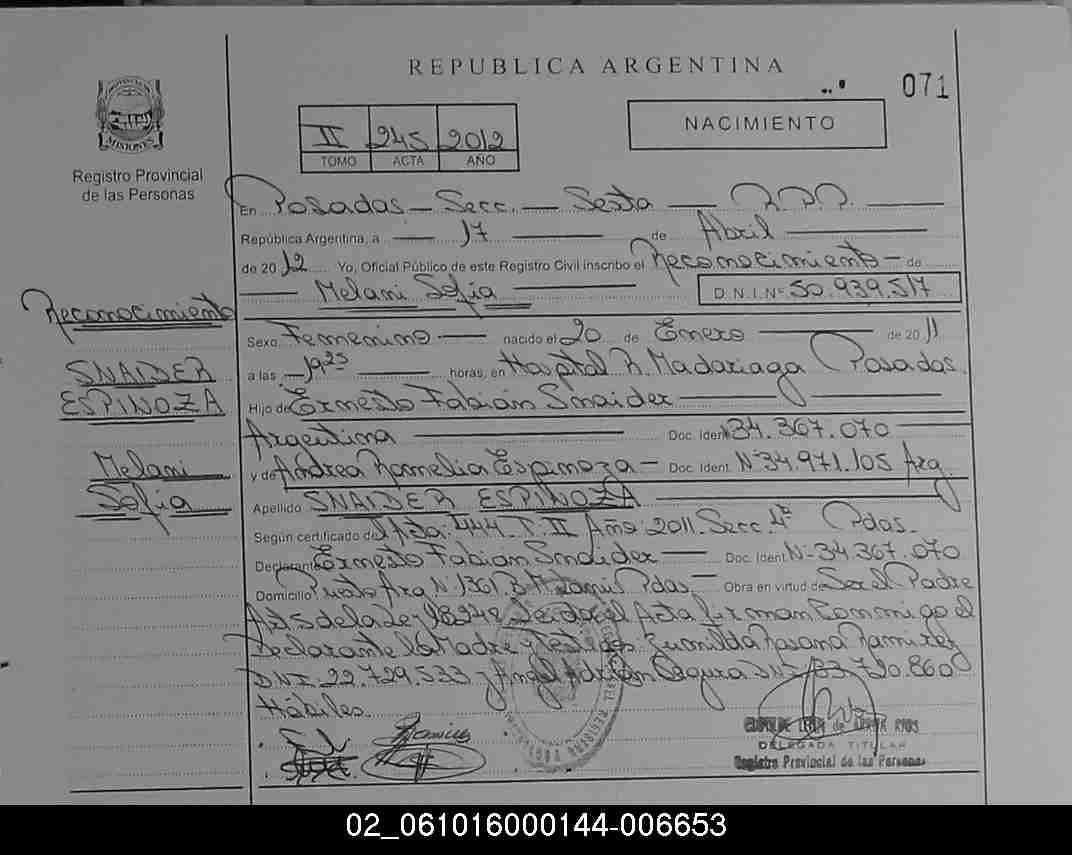 REPUBLICA ARGENTINA
071
NACIMIENTO
II 245 2012
TOMO ACTA AÑO
MISIONES
Registro Provincial
de las Personas
En Posadas — Secc. — Sexta —
República Argentina, a — 17 — de Abril —
de 2012 Yo, Oficial Público de este Registro Civil inscribo el Reconocimiento — de
— Melani Sofia — D.N.I.Nº 50.939.517
Reconocimiento
SNAIDER
ESPINOZA
Melani
Sofia
Sexo Femenino — nacido el 20 de Enero — de 2011
a las — 19 25 — horas, en Hospital R. Madariaga Posadas.
Hijo de Ernesto Fabián Snaider —
Argentina — Doc. Ident 34.367.070 —
y de Andrea Romelia Espinoza — Doc. Ident. Nº 34.971.105 Arg.
Apellido SNAIDER ESPINOZA —
Según certificado de Acta: 444 T. II Año: 2011 Secc 4º Pdas.
Declarante Ernesto Fabián Snaider — Doc. Ident Nº 34.367.070
Domicilio Puesto Arg Nº 1361 Bº Pdas, — Obra en virtud de Ser el Padre
Art 5 de la Ley 18248 Leida el Acta firman Conmigo el
Declarante la Madre y Testigos: Rosana Ramirez
DNI: 22.729.533 y Angel Adrián Segura DNI 33.720.860
Hábiles.
DELEGADA TITULAR
Registro Provincial de las Personas
02_061016000144-006653